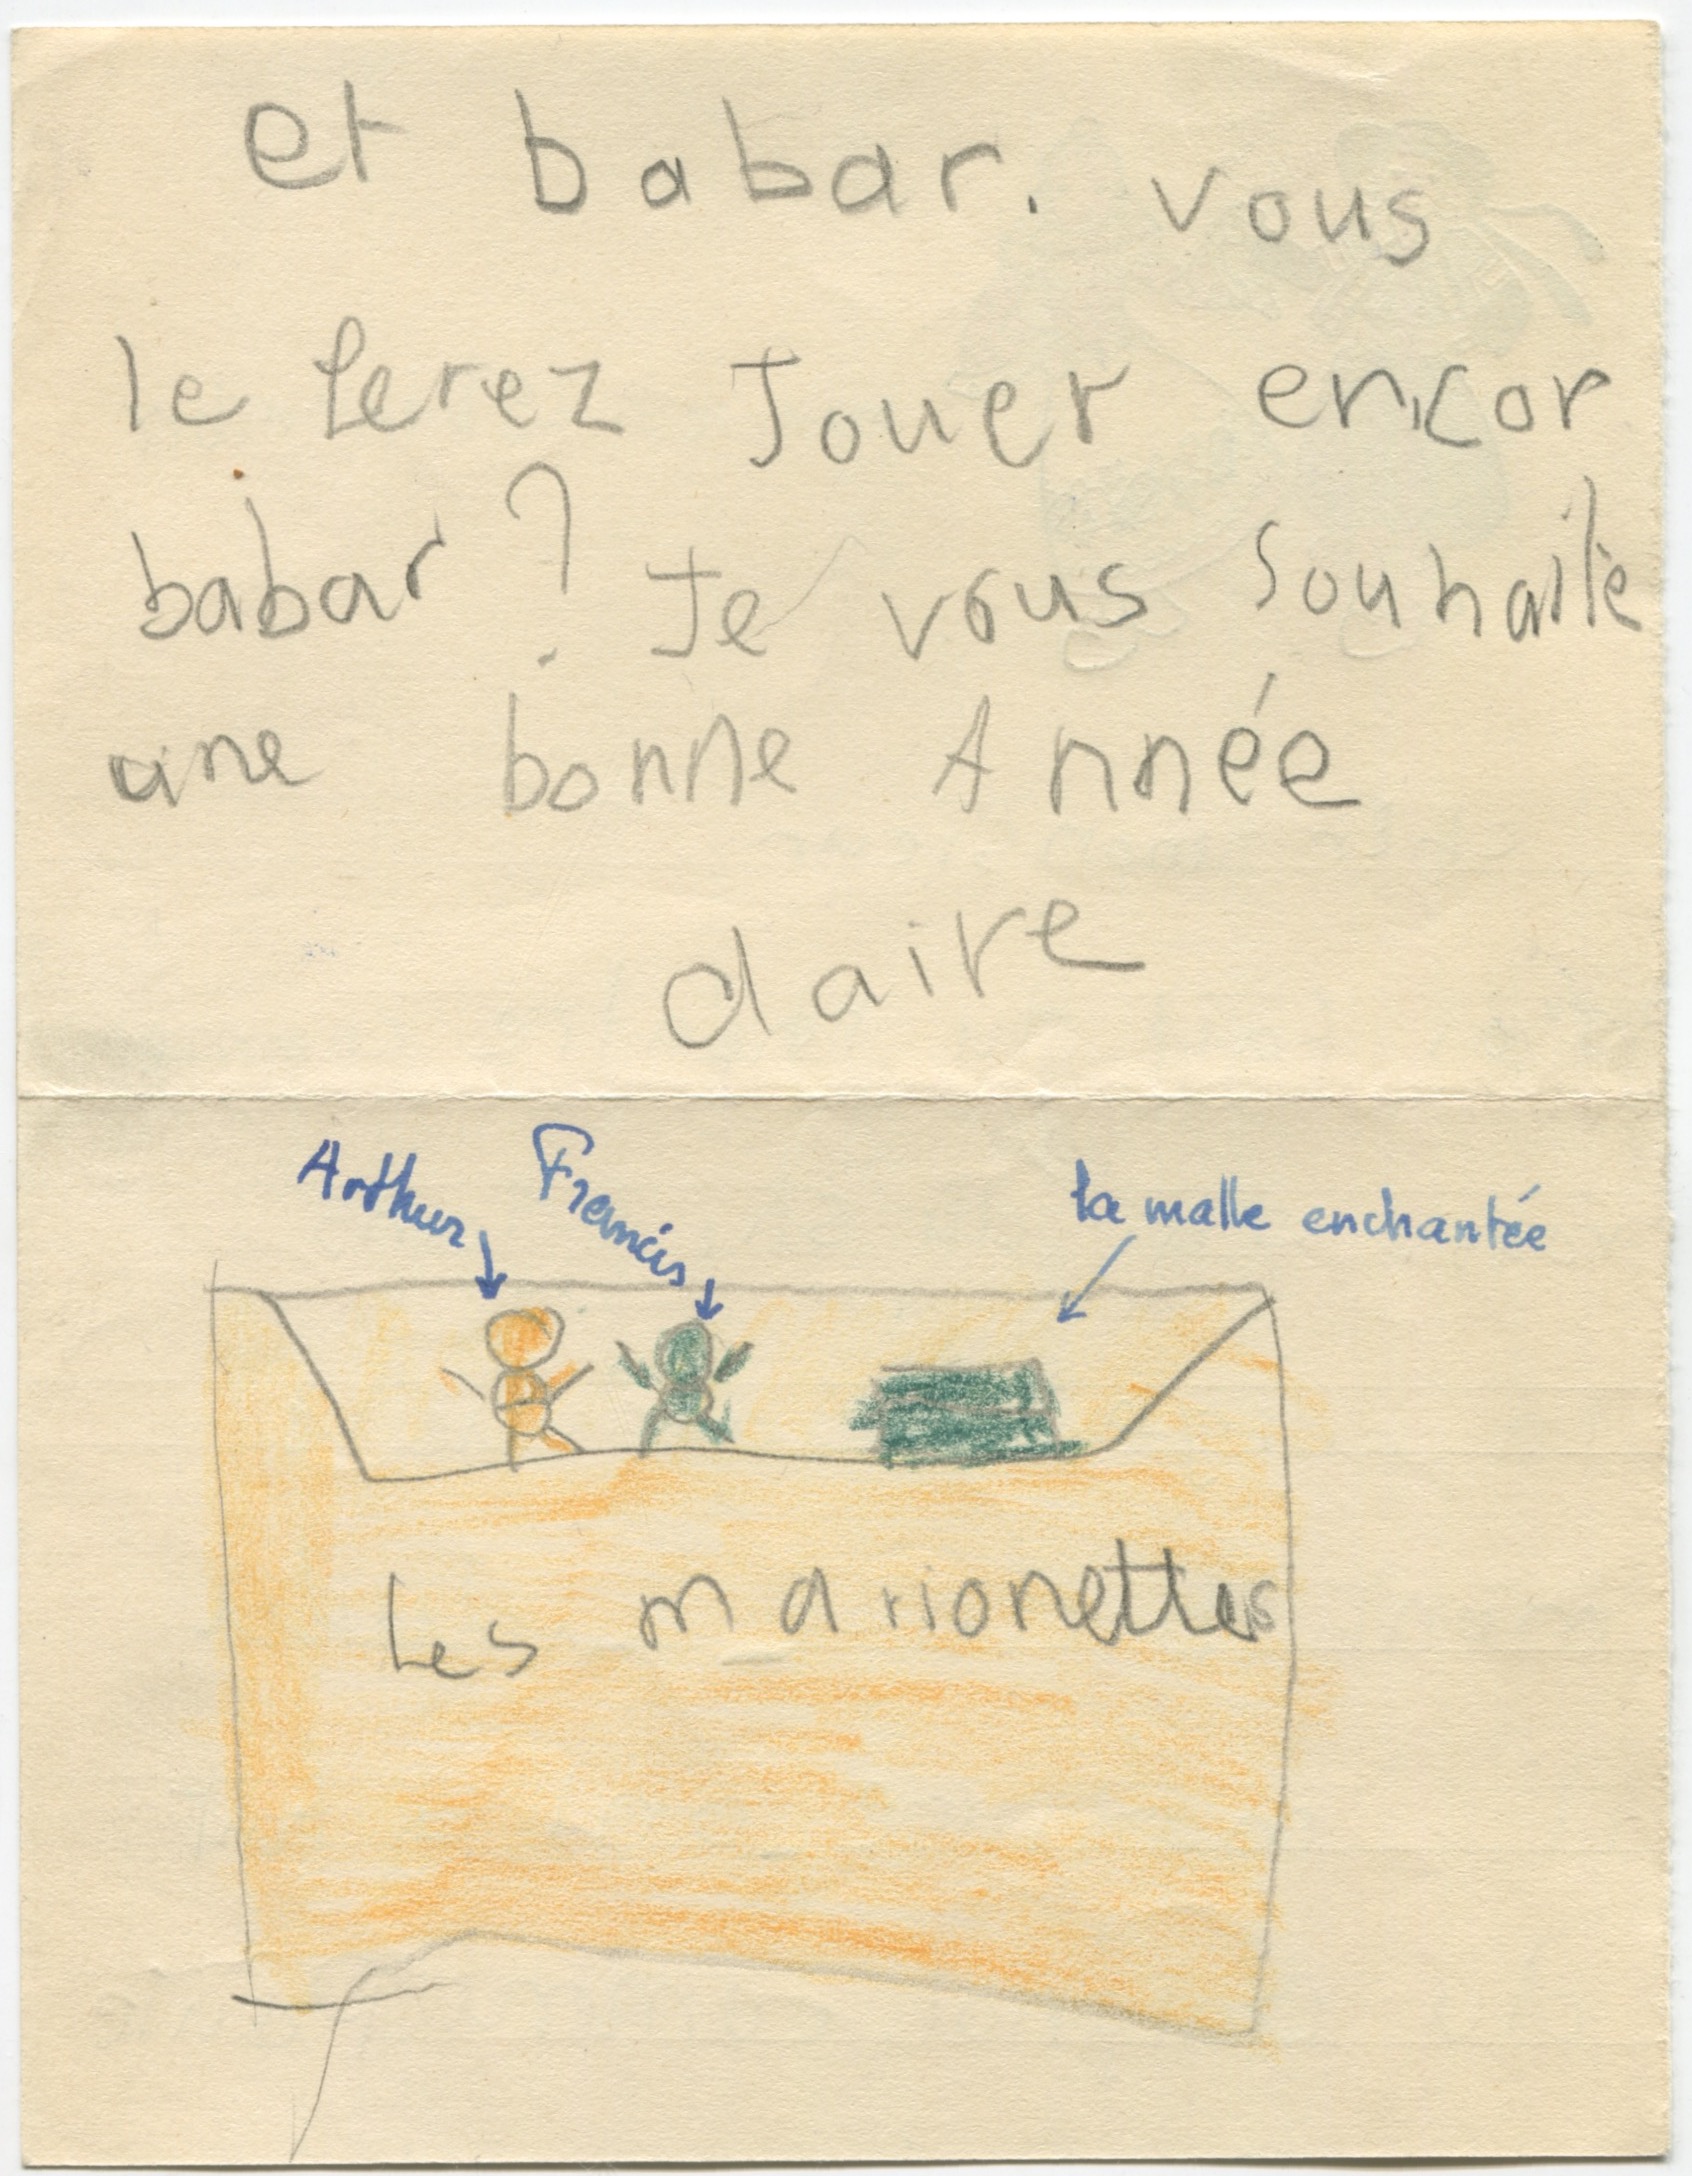 et babar. vous
le ferez Jouer encor
babar ? Je vous souhaite
une bonne Année
claire
Arthur
Francis
la malle enchantée
Les marionettes